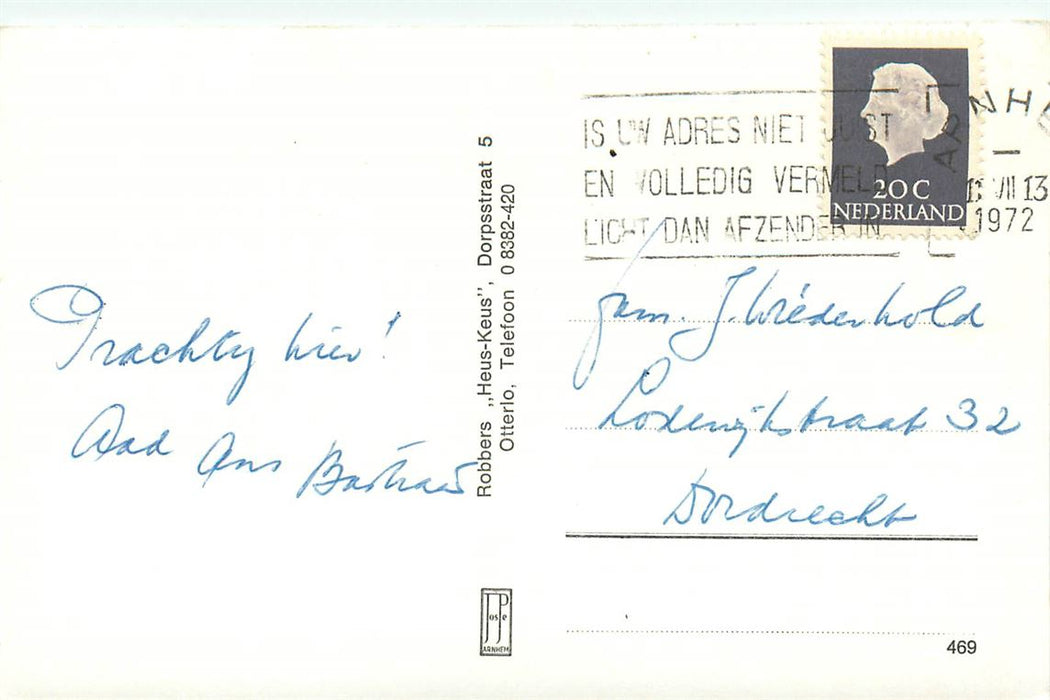 Prachtig hier!
Aad Ans Bastiaan
Robbers ,,Heus-Keus", Dorpsstraat 5
Otterlo, Telefoon 0 8382-420
JosPé
ARNHEM
IS UW ADRES NIET JUIST
EN VOLLEDIG VERMELD
LICHT DAN AFZENDER IN
20 C
NEDERLAND
ARNHE
VII 13
1972
fam. J. Wiederhold
Lodewijkstraat 32
Dordrecht
469